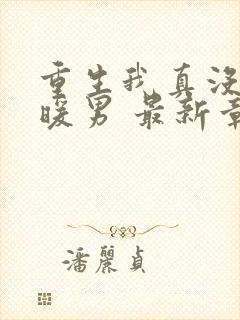 重生我真没
暖男 最新章
潘麗貞